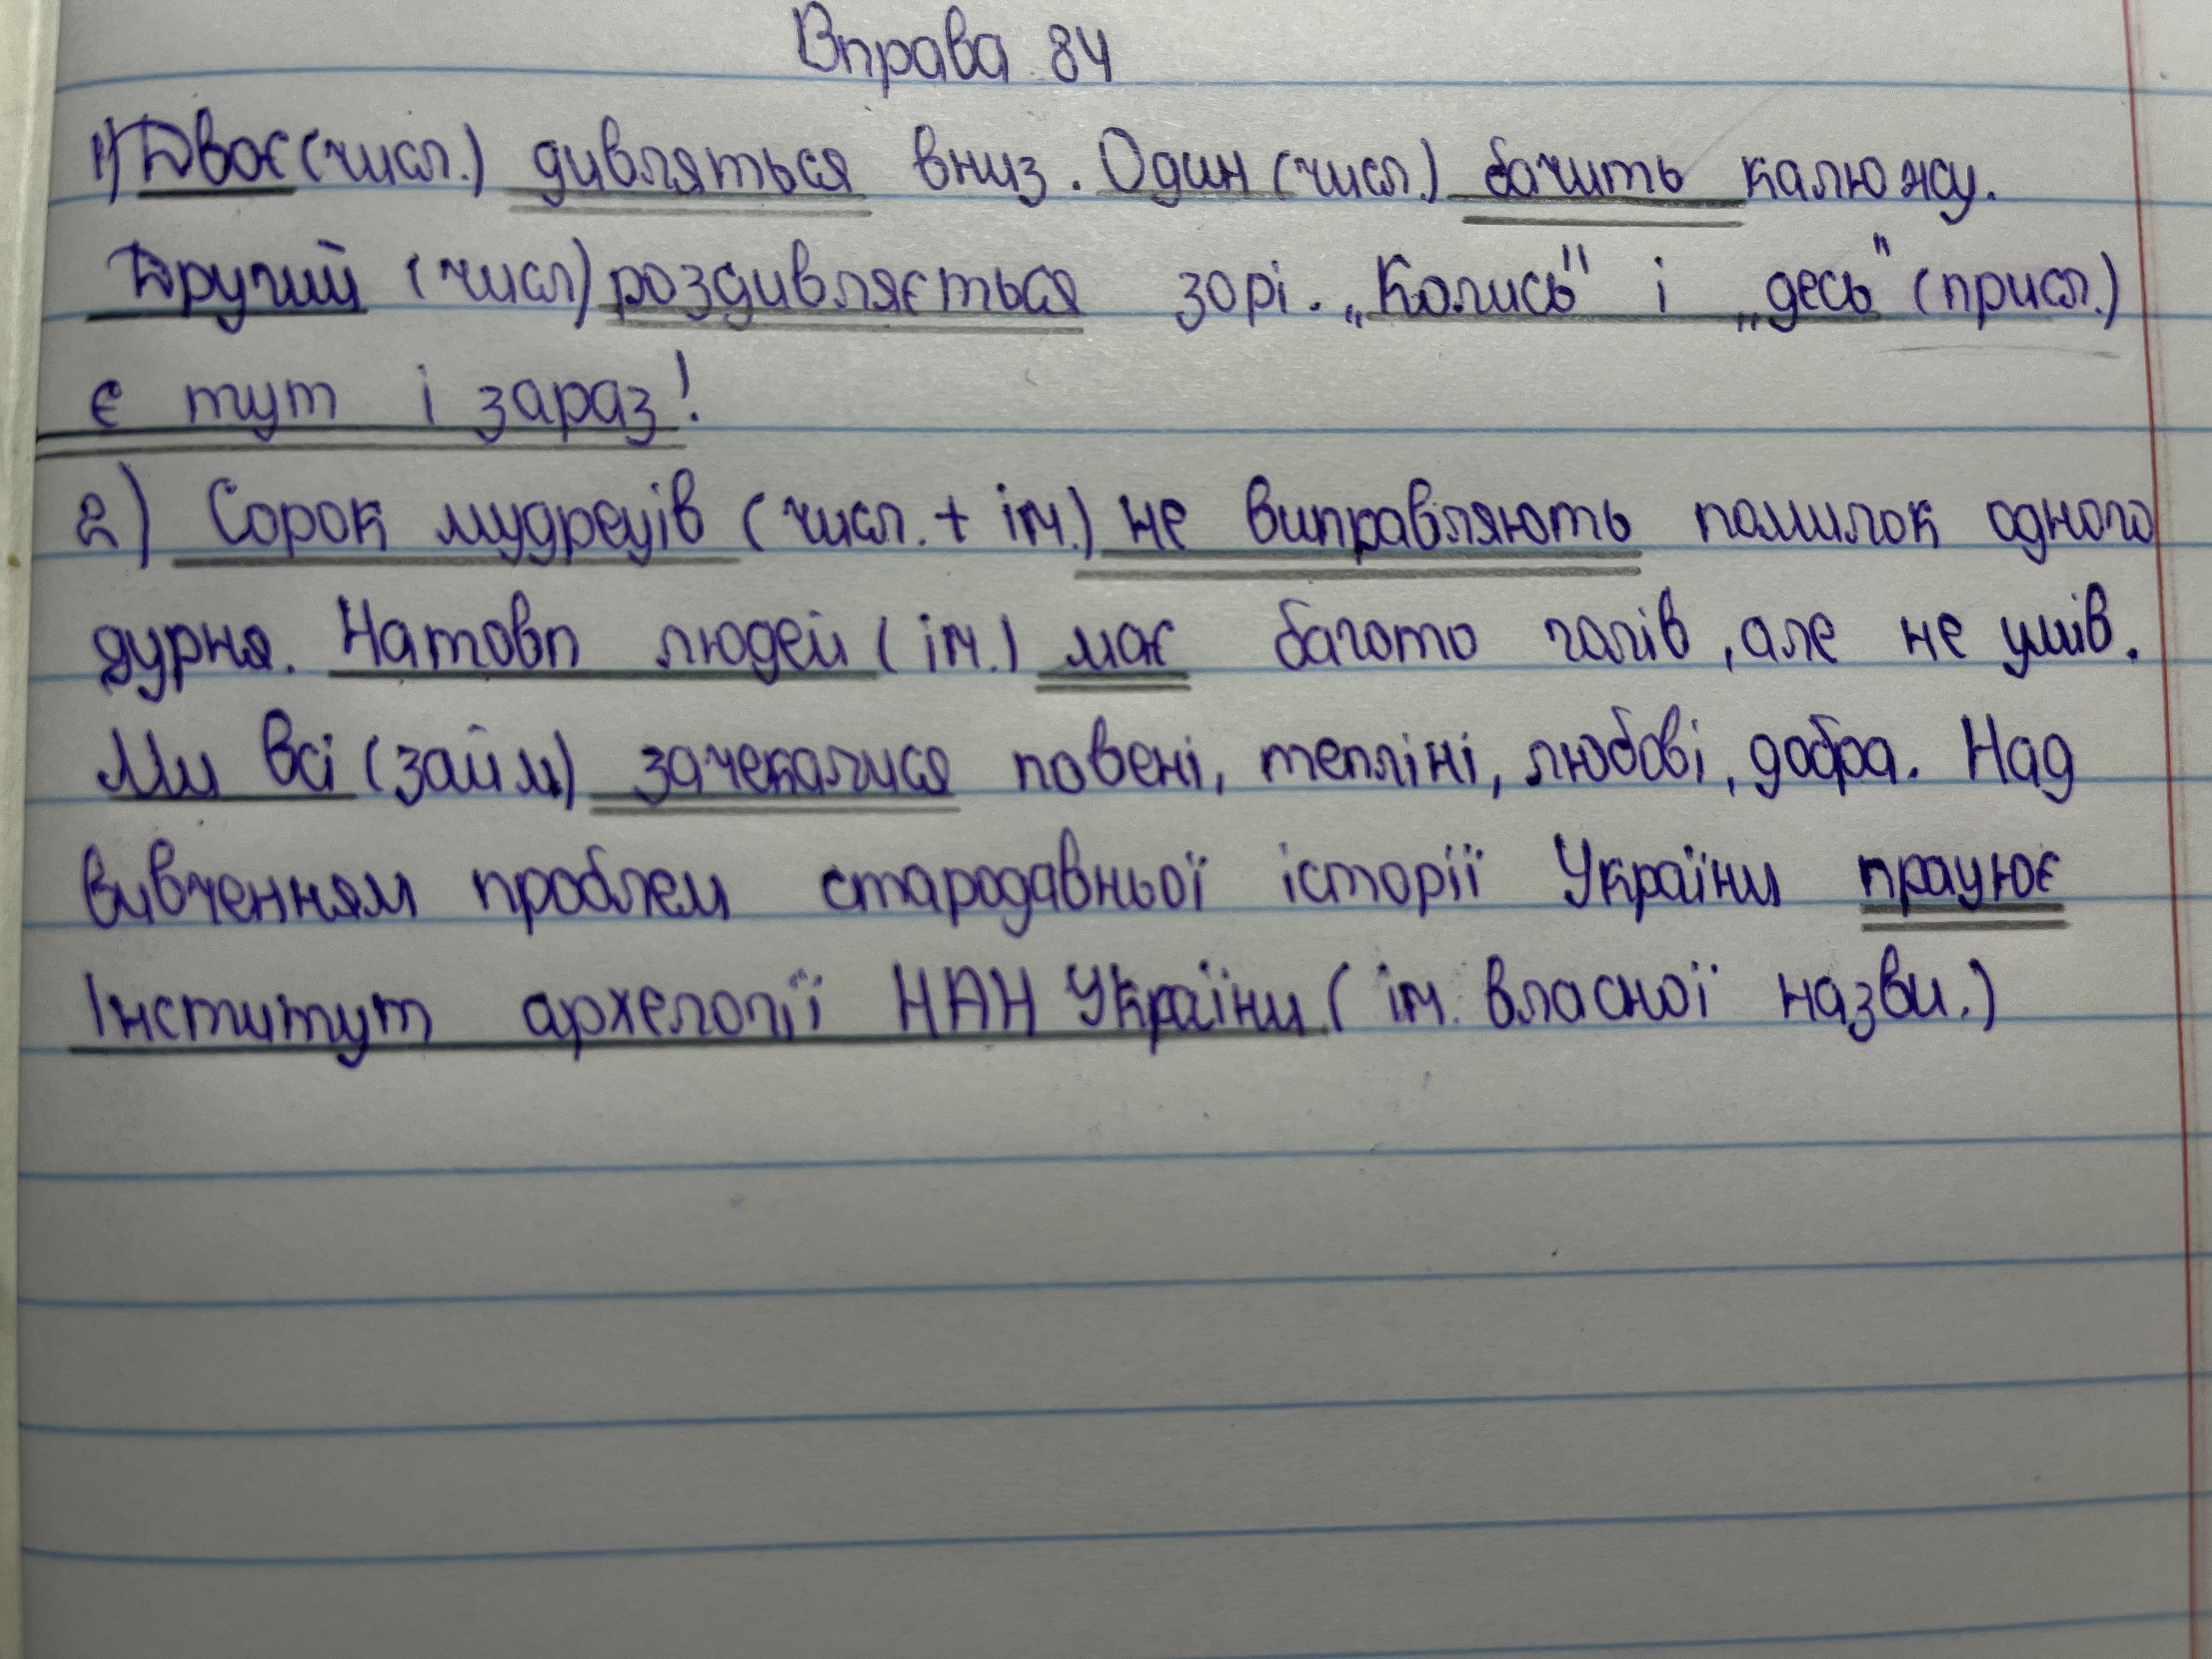 Вправа 84
1) Двоє (числ.) дивляться вниз. Один (числ.) бачить калюжу.
Другий (числ) роздивляється зорі. „Колись" і „десь" (присл.)
є тут і зараз!
2) Сорок мудреців (числ. + ім.) не виправляють помилок одного
дурня. Натовп людей (ім.) має багато голів, але не умів.
Ми всі (займ) зачекалися повені, тепліні, любові, добра. Над
вивченням проблем стародавньої історії України працює
Інститут архелогії НАН України (ім. власної назви.)